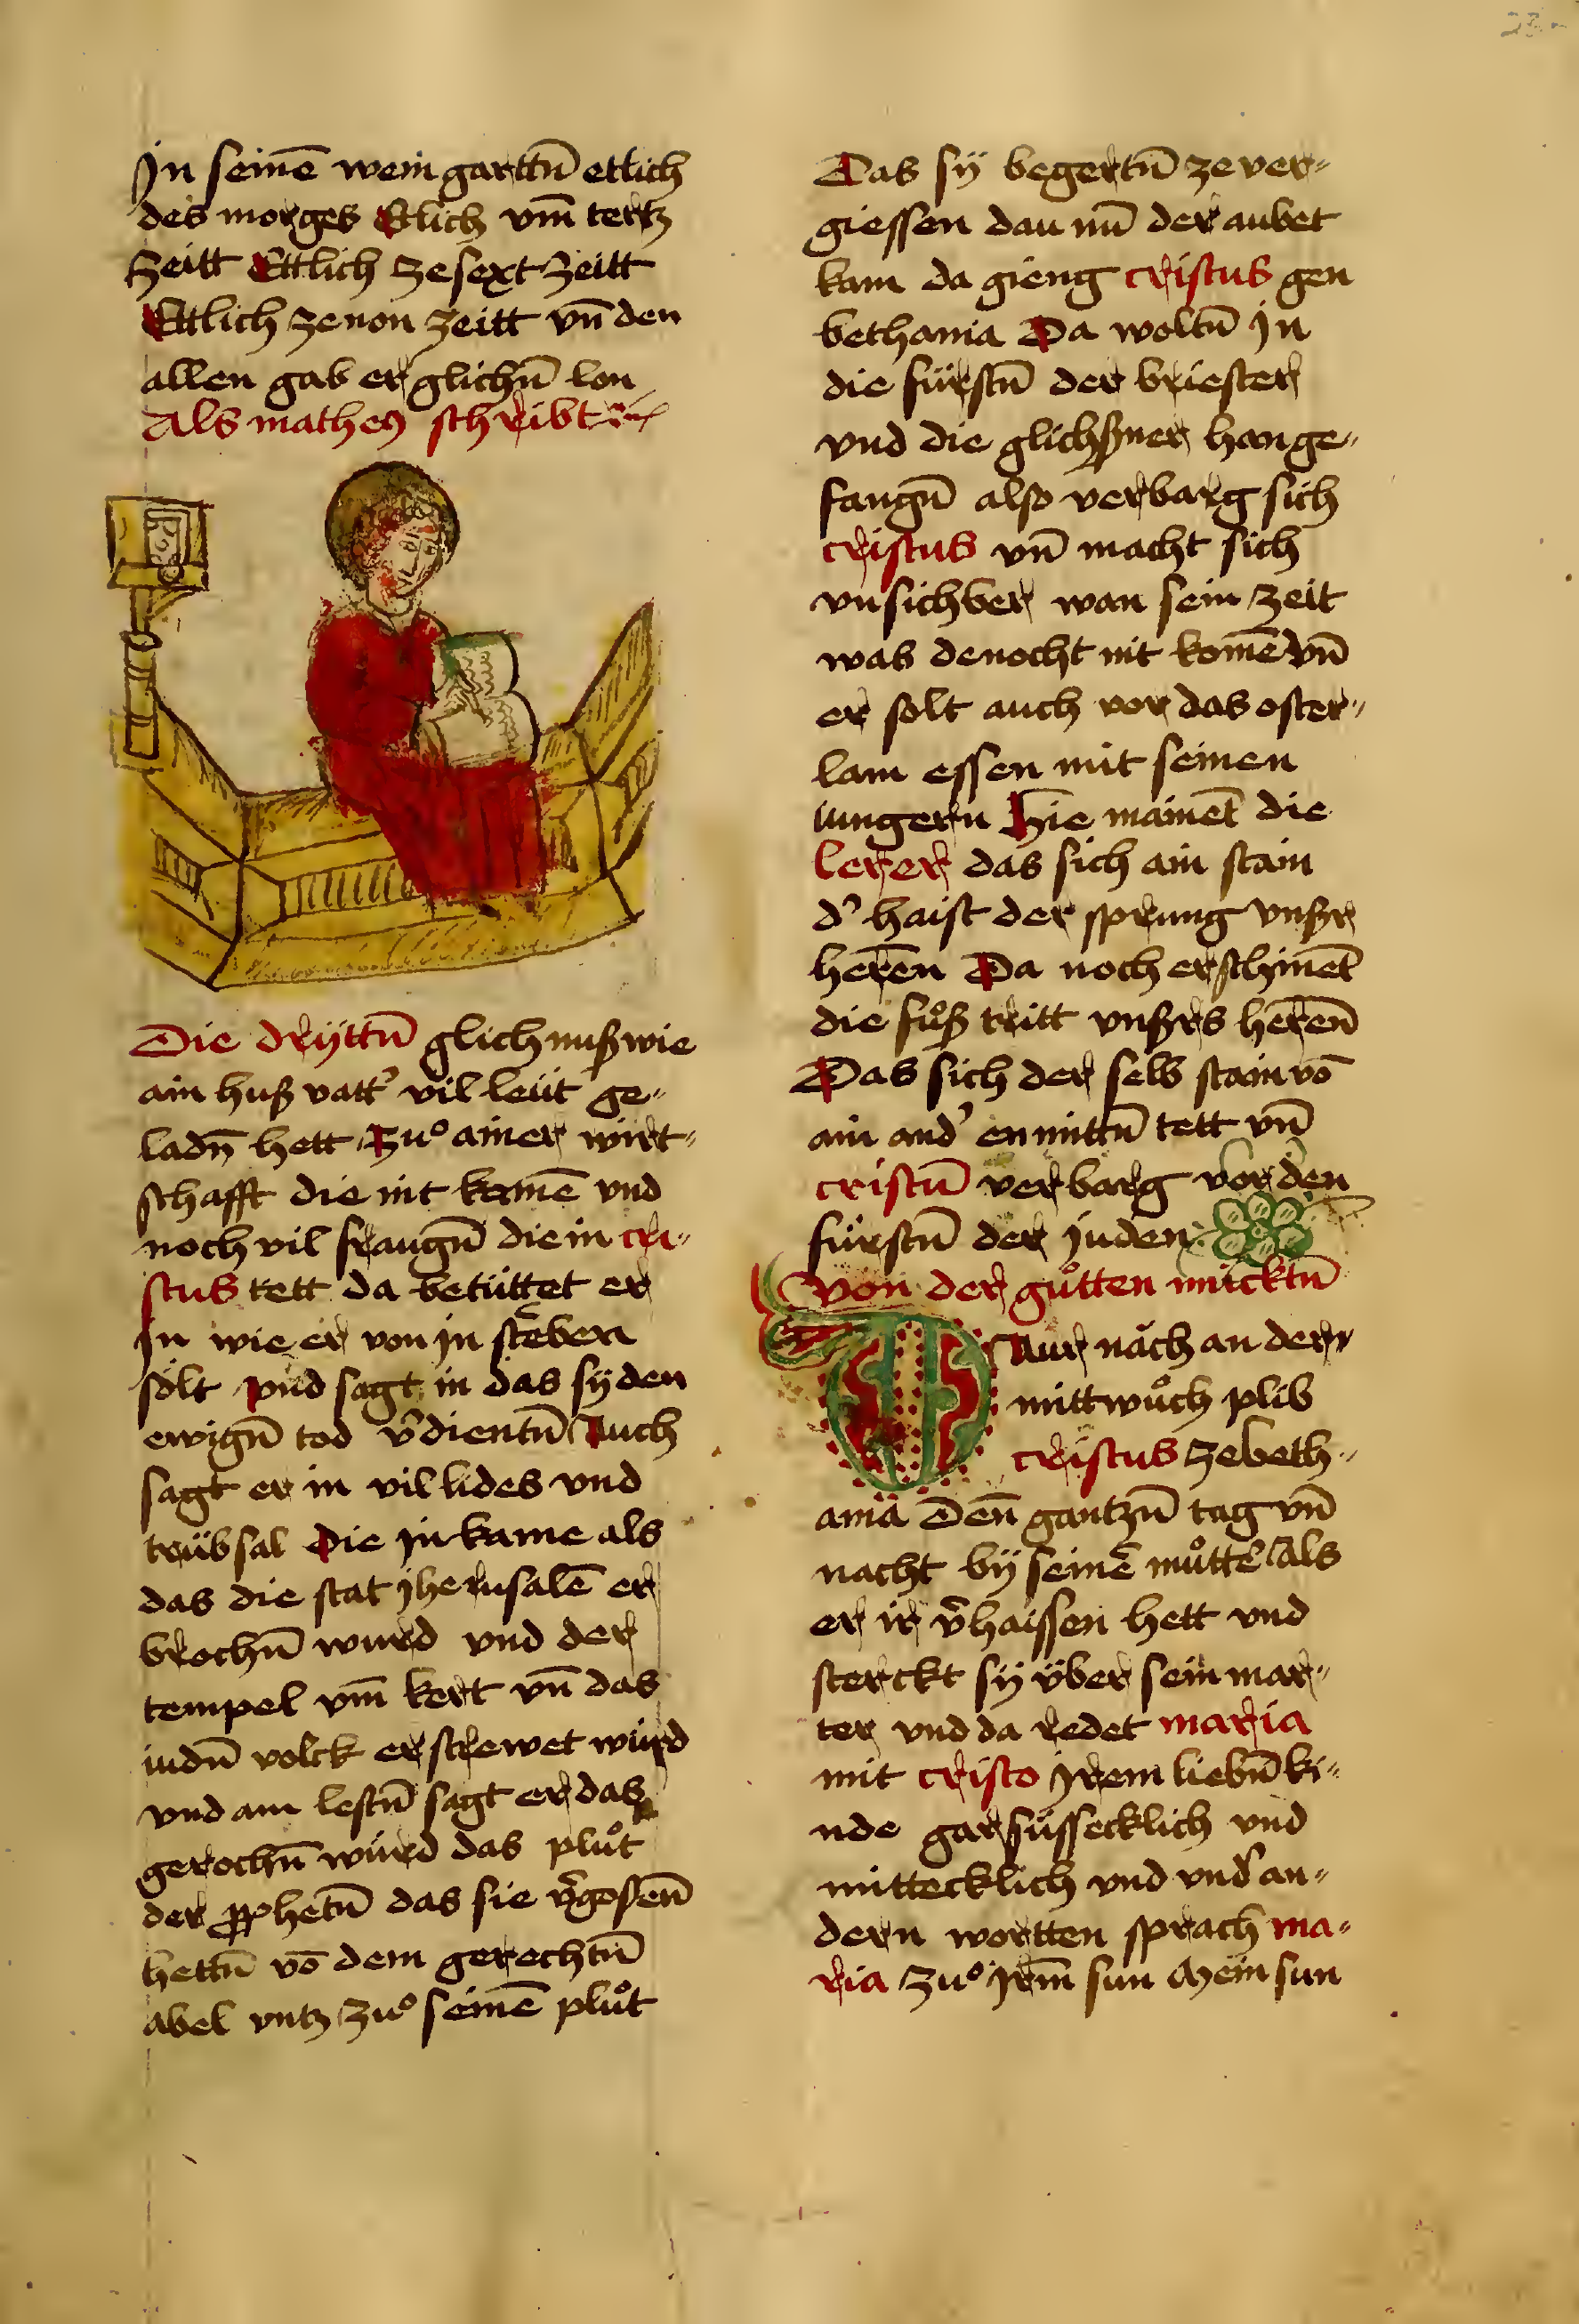 In seinē wein garttn̄ etlich
des morges Etlich vm̄ tertz
Zeitt Ettlich ze sext zeitt
Ettlich ze non zeitt vn̄ den
allen gab er glichn̄ lon
Als matheꝰ schribt
Die dryttn̄ glichnuß wie
ain huß vatt' vil leüt ge„
ladn̄ hett Zuͦ ainer wirt„
schafft die nit kamē vnd
noch vil fraugn̄ die in cri„
stus tett da betüttet er
In wie er von in sterben
sölt vnd sagt in das sÿ den
ewign̄ tod v̄dientn̄ Auch
sagt er in vil lides vnd
trübsal Die in kame als
das die stat jherusalē er
brochn̄ wurd vnd der
tempel vm̄ kert vn̄ das
iudn̄ volck erstrewet würd
vnd am lestn̄ sagt er das
gerochn̄ würd das pluͦt
der ꝓphetn̄ das sie v̄gosen̄
hettn̄ vō dem gerechtn̄
abel vntz zuͦ seinē pluͦt
Das sÿ begertn̄ ze ver„
giessen dau nū der aubet
kam da gieng cristus gen
bethania Da woltn̄ In
die fürstn̄ der briester
vnd die glichßner han ge„
fangn̄ also verbarg sich
cristus vn̄ macht sich
vnsichber wan sein zeit
was denocht nit komē vn̄
er solt auch vor das oster„
lam essen mit seinen
iungern Hie mainēt die
lerer das sich ain stain
d' haist der sprung vnßrs
herēn Da noch erschinēt
die fuͦß tritt vnßrs herēn
Das sich der selb stain vō
ain and' enmittn̄ tett vn̄
cristū verbarg vor den
fürstn̄ der juden
Von der guͦtten micktn̄
Dar nǎch an der
mittwuͦch plib
cristus ze beth„
ania Den̄ gantzn̄ tag vn̄
nacht bÿ seinē muͦtter Als
er ir v̄haissen hett vnd
sterckt sÿ über sein mar„
ter vnd da redet maria
mit cristo Irem liebn̄ ki„
nde gar süssecklich vnd
mittecklich vnd vnd' an„
dern wortten sprach ma„
ria zuͦ Irm̄ sun Mein sun